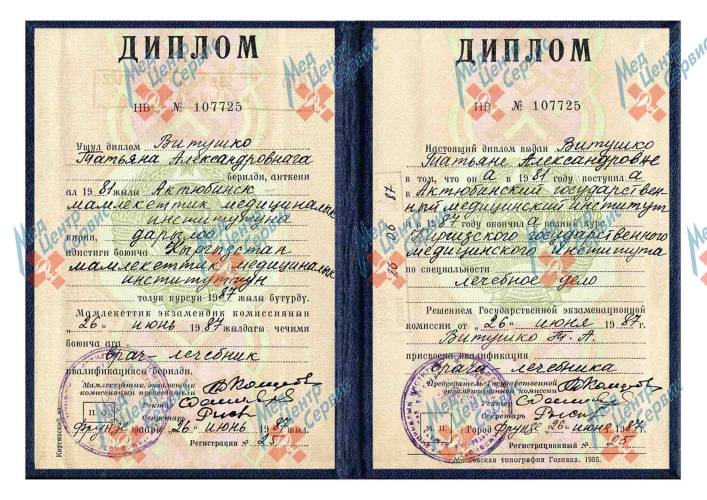 ДИПЛОМ
НВ № 107725
Ушул диплом Витушко
Татьяна Александровнага
берилди, анткени
ал 1981 жылы Актюбинск
мамлекеттик медициналык
институтуна
кирип, дарылоо
адистиги боюнча Кыргызстан
мамлекеттик медициналык
институтун
толук курсун 1987 жылы бутурду.
Мамлекеттик экзамендик комиссиянын
„26“ июнь 1987 жылдагы чечими
боюнча ага
врач-лечебник
квалификациясы берилди.
Мамлекеттик экзамендик
комиссиянын председатели
Ректор
Секретарь
Фрунзе шаары „26“ июнь 1987 жыл.
Регистрация № 25
ДИПЛОМ
НВ № 107725
Настоящий диплом выдан Витушко
Татьяне Александровне
в том, что она в 1981 году поступила
в Актюбинский государствен-
ный медицинский институт
и в 1987 году окончила полный курс
Киргизского государственного
медицинского института
по специальности
лечебное дело
Решением Государственной экзаменационной
комиссии от „26“ июня 1987 г.
Витушко Т. А.
присвоена квалификация
врача-лечебника
Председатель Государственной
экзаменационной комиссии
Ректор
Секретарь
М. П. Город Фрунзе „26“ июня 1987 г.
Регистрационный № 25
Московская типография Гознака. 1985.
Мед Центр Сервис